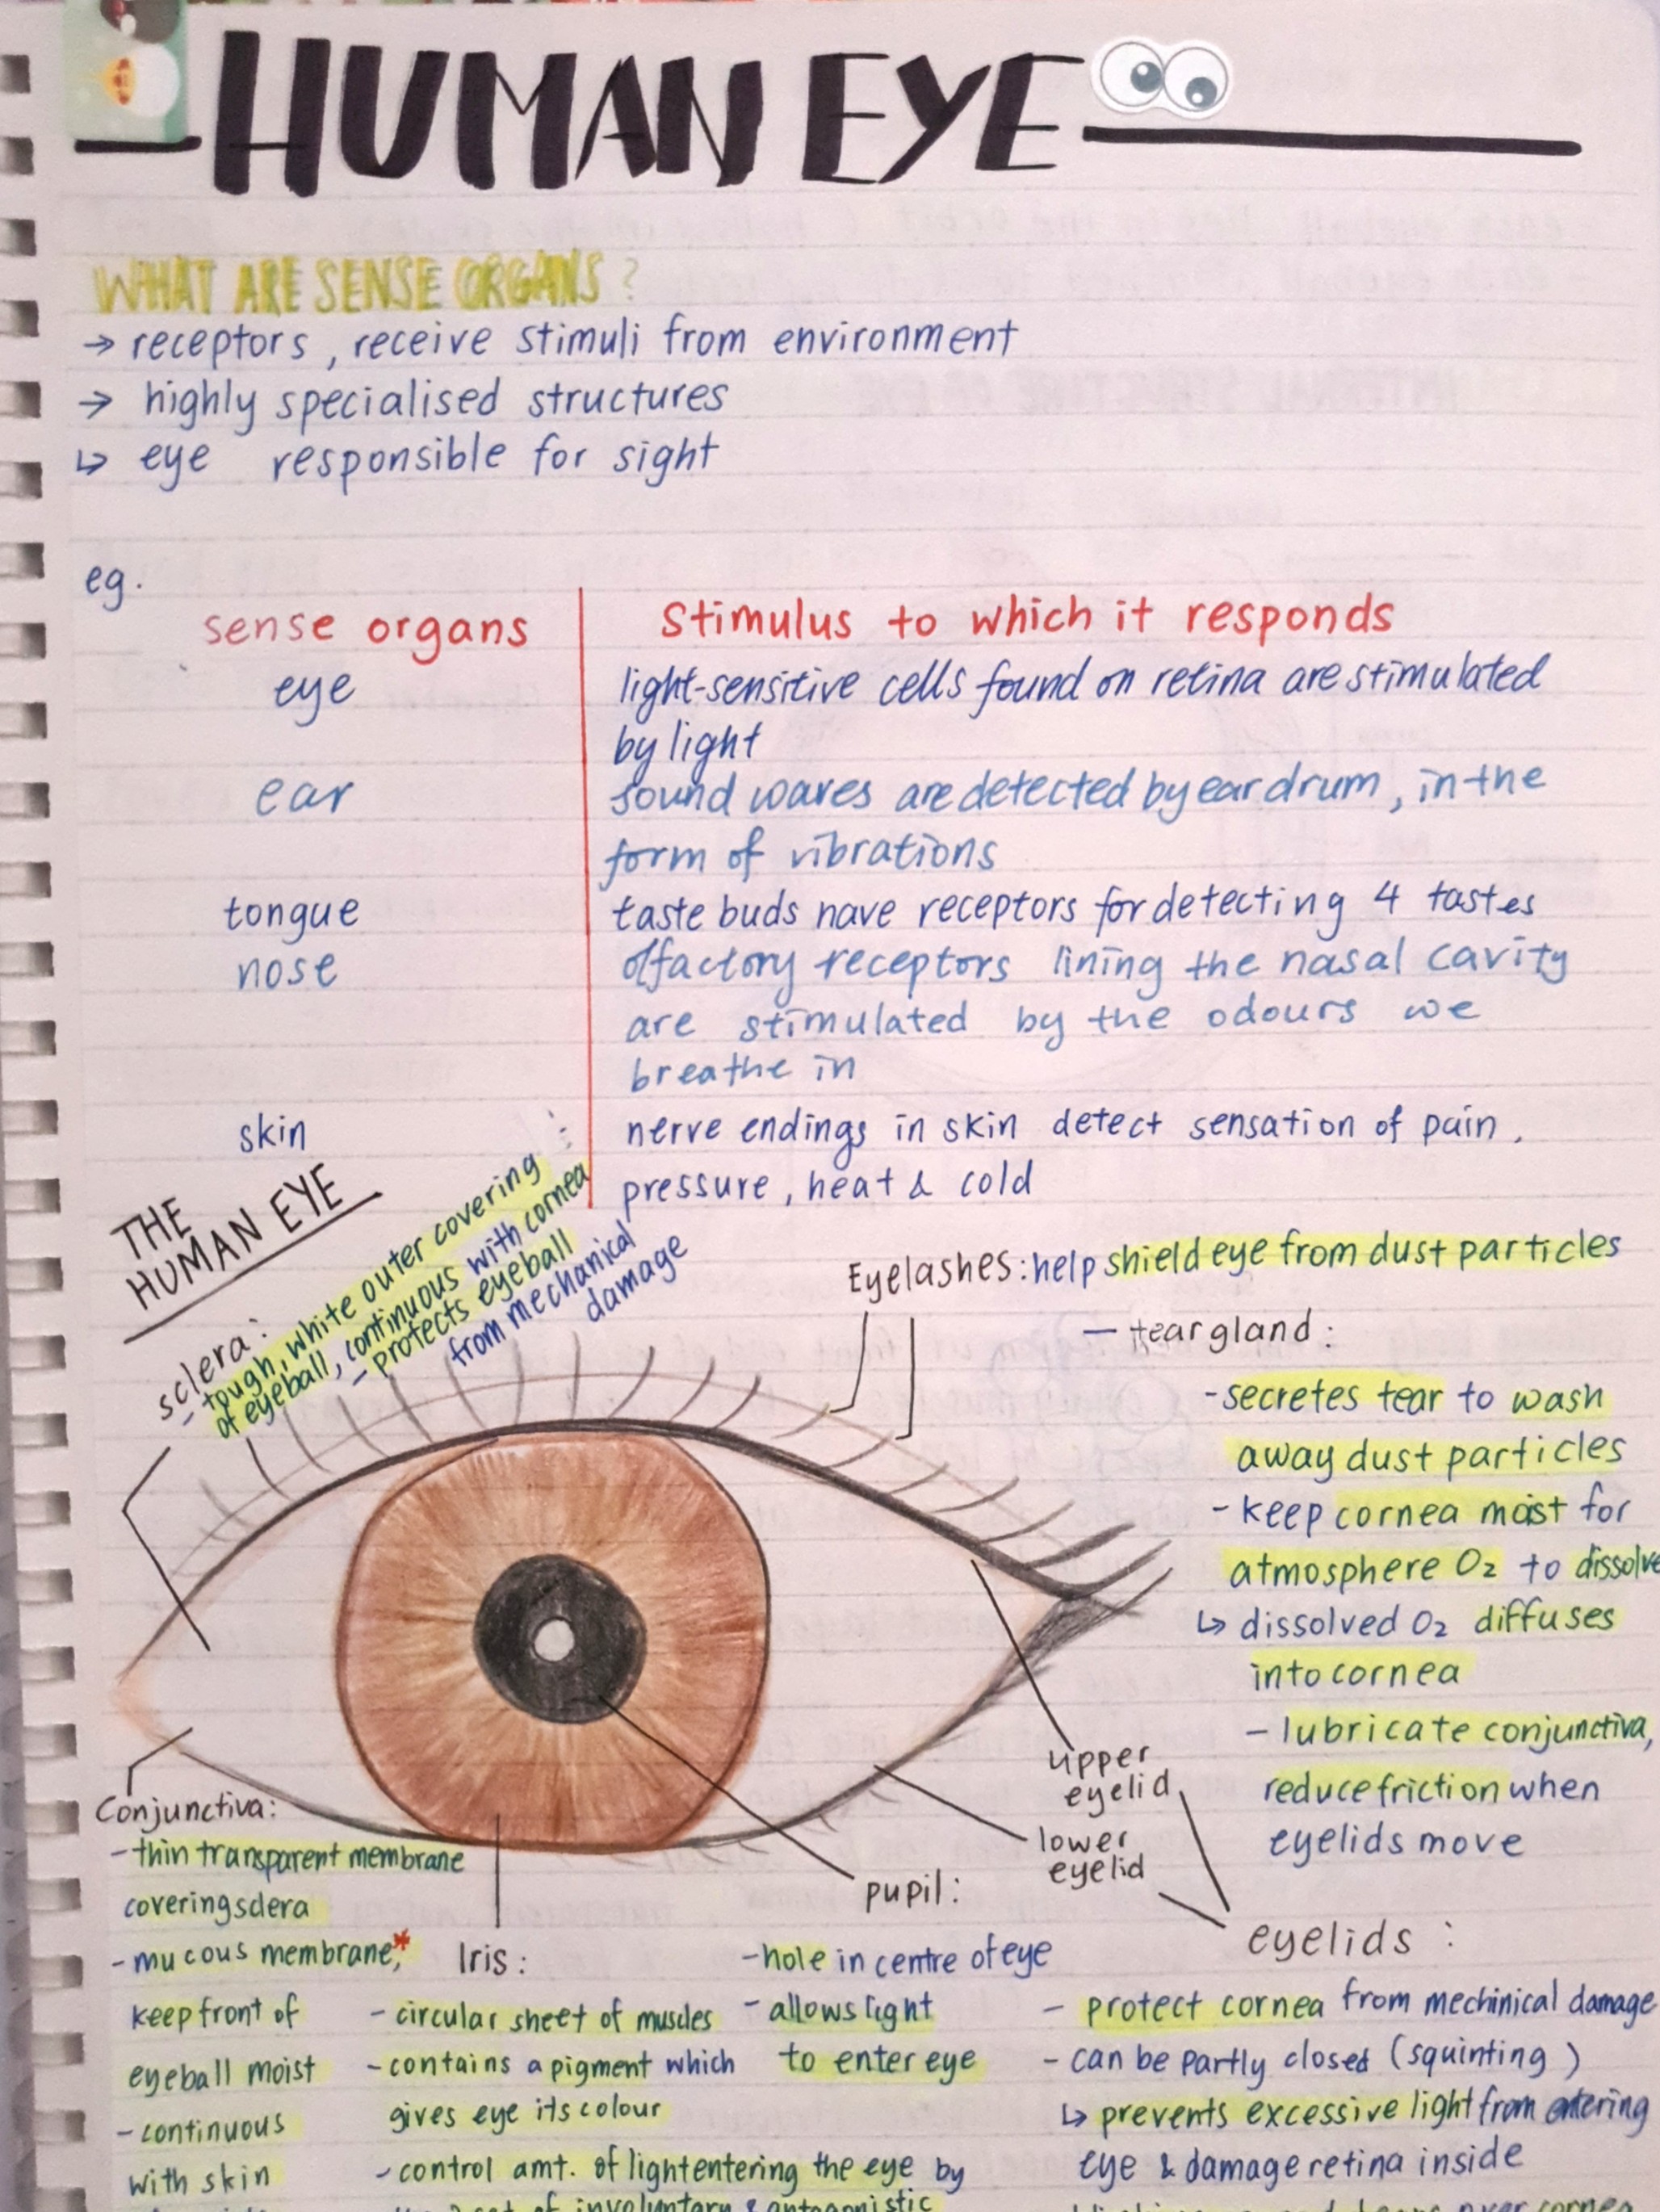 HUMAN EYE
WHAT ARE SENSE ORGANS?
→ receptors, receive stimuli from environment
→ highly specialised structures
↳ eye responsible for sight
eg.
sense organs
stimulus to which it responds
eye
light-sensitive cells found on retina are stimulated
by light
ear
sound waves are detected by ear drum, in the
form of vibrations
tongue
taste buds have receptors for detecting 4 tastes
nose
olfactory receptors lining the nasal cavity
are stimulated by the odours we
breathe in
skin
nerve endings in skin detect sensation of pain,
pressure, heat & cold
THE
HUMAN EYE
sclera:
- tough, white outer covering
of eyeball, continuous with cornea
- protects eyeball
from mechanical
damage
Eyelashes: help shield eye from dust particles
- tear gland:
- secretes tear to wash
away dust particles
- keep cornea moist for
atmosphere O₂ to dissolve
↳ dissolved O₂ diffuses
into cornea
- lubricate conjunctiva,
reduce friction when
eyelids move
upper
eyelid
lower
eyelid
Conjunctiva:
- thin transparent membrane
covering sclera
- mucous membrane*,
keep front of
eyeball moist
- continuous
with skin
Iris:
- circular sheet of muscles
- contains a pigment which
gives eye its colour
- control amt. of light entering the eye by
of involuntary & antagonistic
pupil:
- hole in centre of eye
- allows light
to enter eye
eyelids:
- protect cornea from mechinical damage
- can be partly closed (squinting)
↳ prevents excessive light from entering
eye & damage retina inside